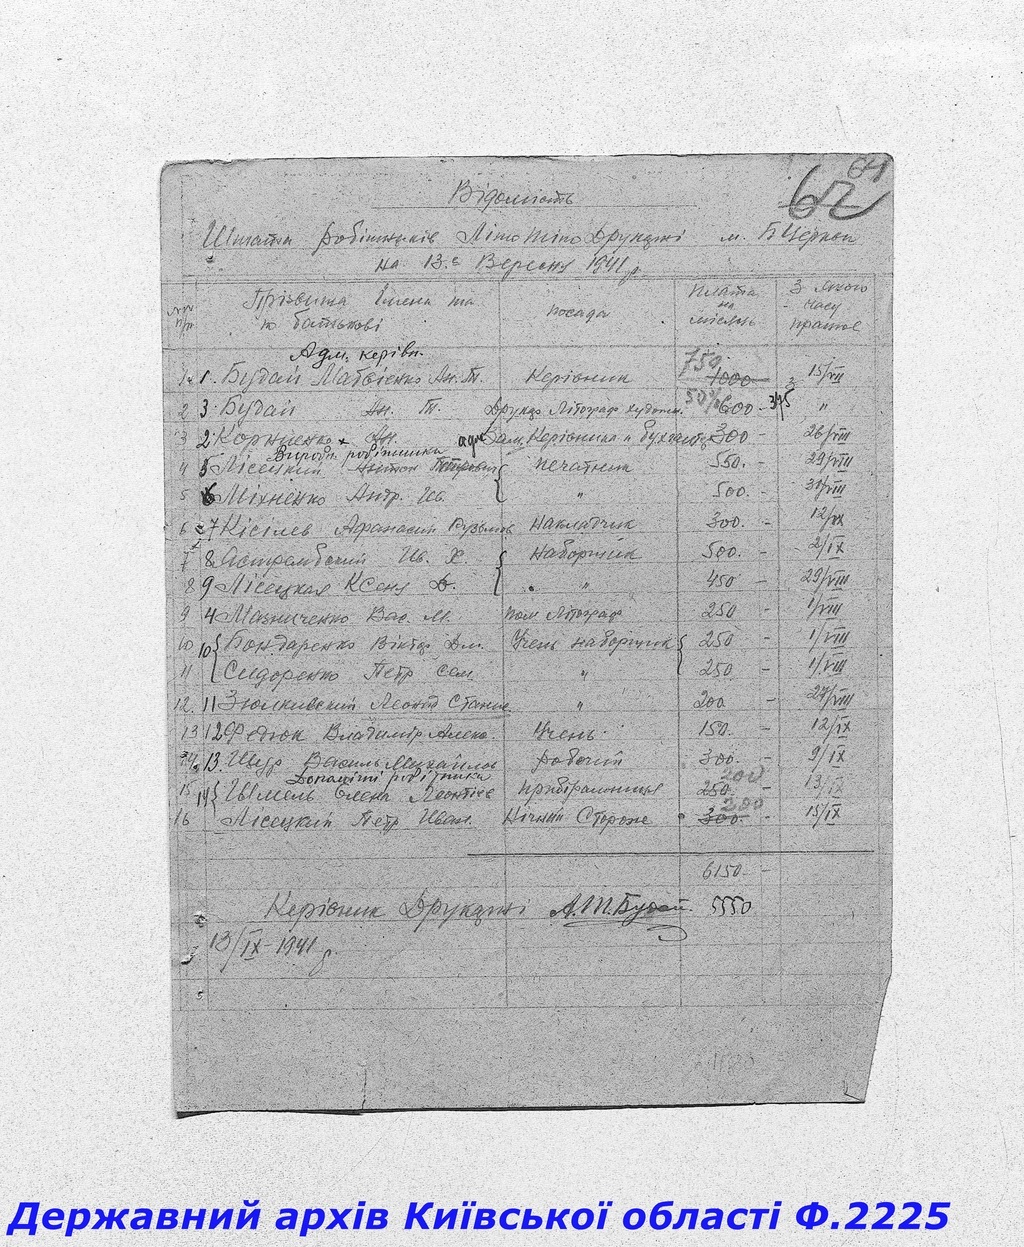 64
62
Відомість
Штата робітників Літо Типо Друкарні м. БЦеркви
на 13е Вересня 1941 р.
№№ п/п Прізвища Імена та по батькові посада Плата на місяць З якого часу працює
Адм. керівн.
1. 1. Будай Матвієнко Ан. Т. Керівник 750 1000 з 15/VII
2 3 Будай Ан. Т. Друкар Літограф художн. 50% 600 - 375 "
3 2 Корнієнко Ан. Зам. Керівника и бухгалтер 300 - 26/VIII
Виробн. робітники
4 5 Лісецкий Антон Петрович печатник 550. - 29/VIII
5 6 Міхненко Андр. Ів. " 500. - 31/VIII
6 7 Кісілев Афанасий Кузьмов накладчик 300. - 12/IX
7 8 Ів. Х. наборщик 500. - 2/IX
8 9 Лісецкая Ксеня " 450 - 29/VIII
9 4 Мазниченко Вас. М. пом Літограф 250 - 1/VIII
10 10 Бондаренко Віктор Дм. Учень наборщик 250 - 1/VIII
11 Сидоренко Петр Сем. " 250. - 1/VIII
12. 11 Зюлковский Леонид Станис " 200 - 27/VIII
13 12 Федюк Владимір Алекс. Учень 150. - 12/IX
14. 13. Щур Василь Михайлов рабочий 300. - 9/IX
Допоміжні робітники
15 14 Шмель Олена Леонтівн прибіральниця 250. 200 13/IX
16 Лісецкий Петр Иван. Нічний Сторож 300. 200 - 15/IX
6150 -
Керівник Друкарні А.Т.Будай 5550
13/IX-1941 р.
Державний архів Київської області Ф.2225